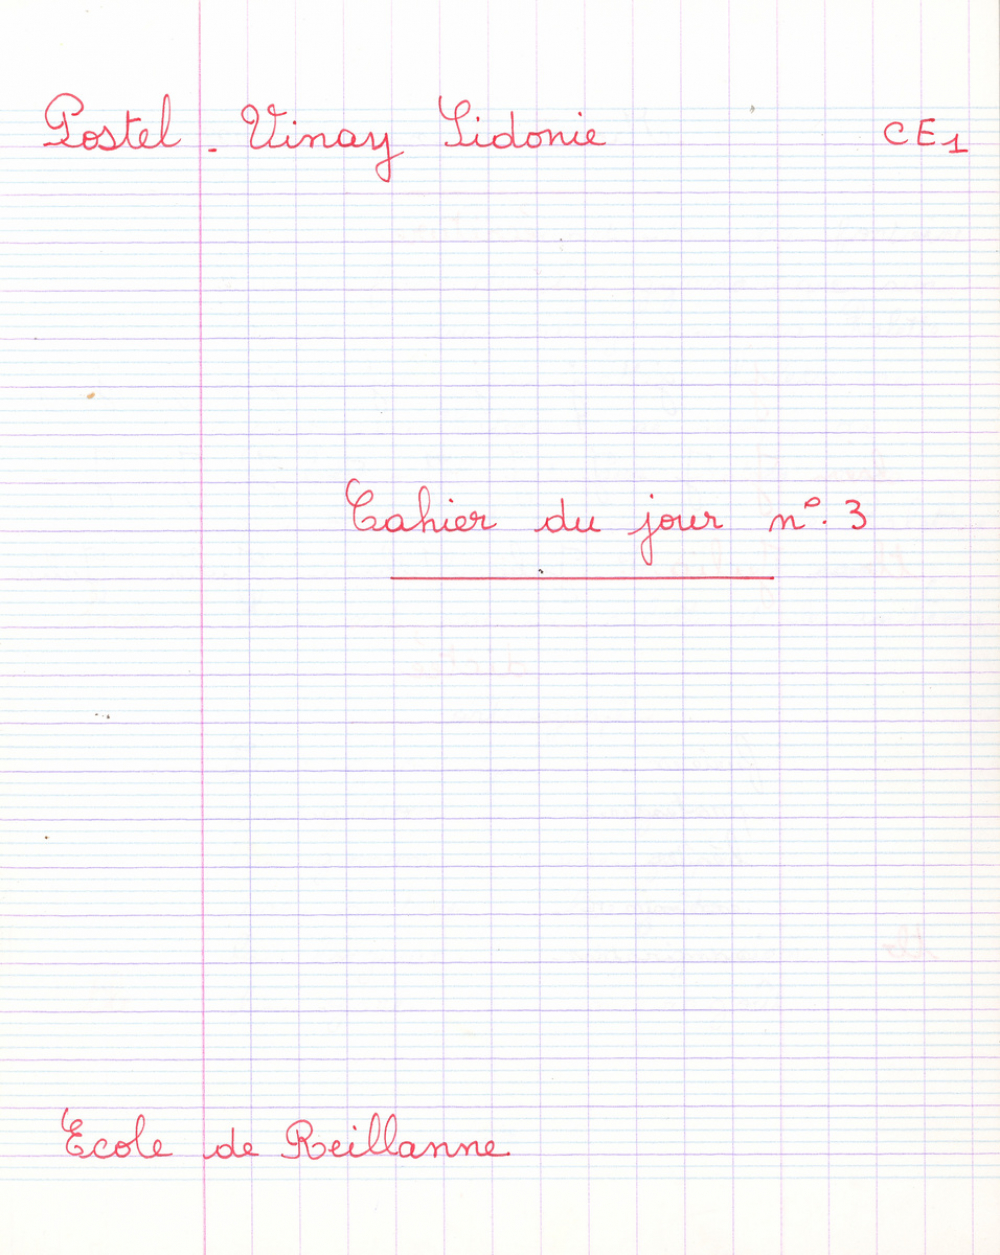 Postel - Vinay Sidonie CE1
Cahier du jour n°. 3
Ecole de Reillanne